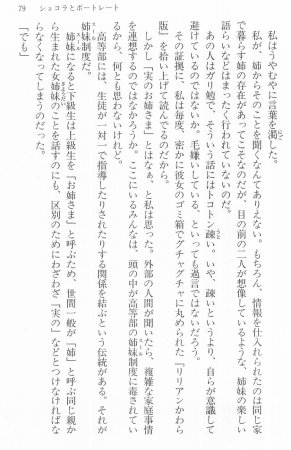 79　ショコラとポートレート
私はうやむやに言葉を濁した。
私が、姉からそのことを聞くなんてありえない。もちろん、情報を仕入れられたのは同じ家
で暮らす姉の存在があってこそなのだが、目の前の二人が想像しているような、姉妹の楽しい
語らいなどはまったく行われていないのだ。
あの人はガリ勉で、そういう話にはトコトン疎い。いや、疎いというより、自らが意識して
避けているのではないか。毛嫌いしている、といっても過言ではないだろう。
その証拠に、私は毎度、密かに彼女のゴミ箱でグチャグチャに丸められた『リリアンかわら
版』を拾い上げて読んでるのだから。
しかし「実のお姉さま」とはなぁ、と私は思った。外部の人間が聞いたら、複雑な家庭事情
を連想するのではなかろうか。ここにいるみんなは、頭の中が高等部の姉妹制度に毒されてい
るから、何とも思わないけれど。
高等部には、生徒が一対一で指導したりされたりする関係を結ぶという伝統がある。それが
姉妹制度だ。
姉妹になると下級生は上級生を「お姉さま」と呼ぶため、世間一般が「姉」と呼ぶ同じ親か
ら生まれた女姉妹のことを話すのにも、区別のためにわざわざ「実の」などとつけなければな
らなくなってしまうのだった。
「でも」